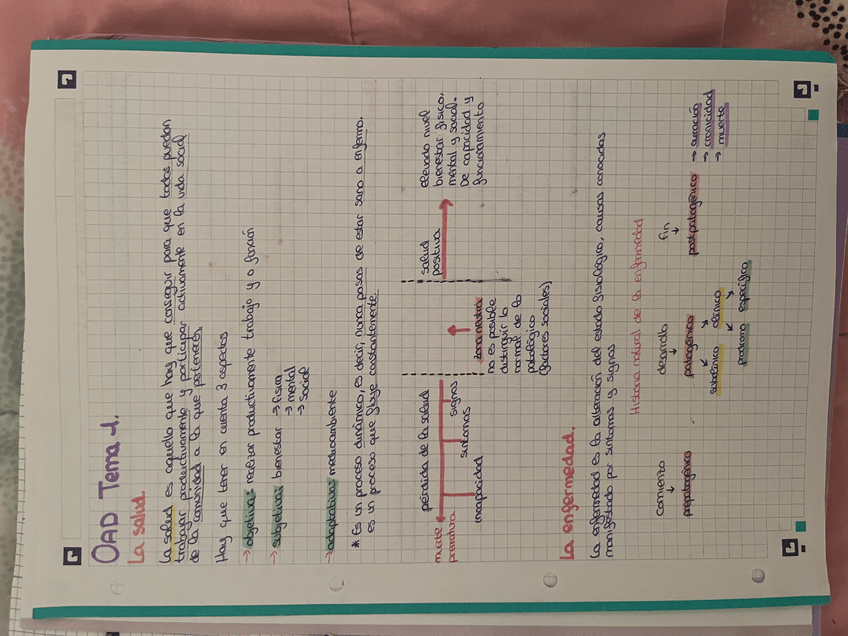 OAD Tema 1.
La salud.
La salud es aquello que hay que conseguir para que todas puedan
trabajar productivamente y participar activamente en la vida social
de la comunidad a la que pertenecen.
Hay que tener en cuenta 3 aspectos
→ objetiva: realizar productivamente trabajo y o función
→ subjetiva: bienestar → física
→ mental
→ social
→ adaptativa: medioambiente
* Es un proceso dinámico, es decir, nunca pasas de estar sano a enfermo.
es un proceso que fluye constantemente.
muerte
prematura
pérdida de la salud
incapacidad
sintomas
signos
zona neutra
no es posible
distinguir lo
normal de lo
patológico
(factores sociales)
salud
positiva
elevado nivel
bienestar físico,
mental y social.
De capacidad y
funcionamiento
La enfermedad.
La enfermedad es la alteración del estado fisiológico, causas conocidas
manifestado por síntomas y signos
Historia natural de la enfermedad
comienzo
↓
prepatogénico
desarrollo
↓
patogénico
subclínico
clínico
prodromo
específico
fin
↓
postpatogénico
→ curación
→ cronicidad
→ muerte